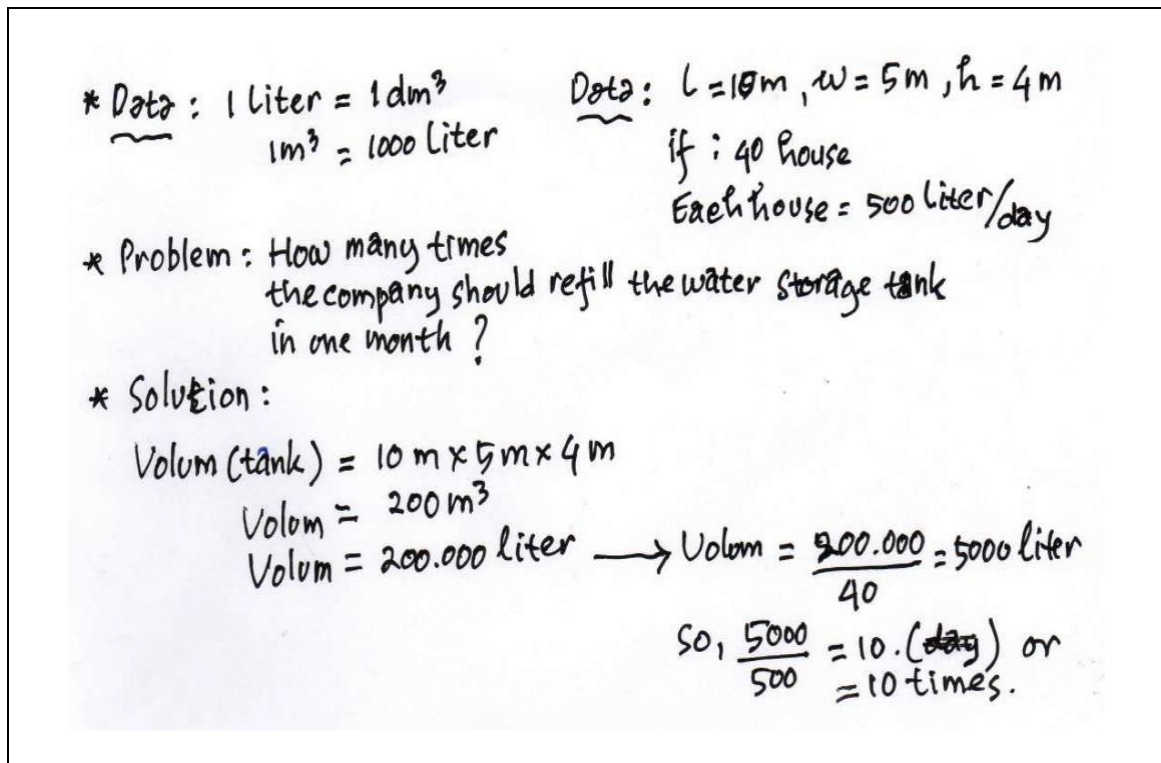 * Data : 1 Liter = 1 dm³
1m³ = 1000 Liter
Data : l = 10m, w = 5m, h = 4m
if : 40 house
Each house = 500 liter/day
* Problem : How many times
the company should refill the water storage tank
in one month ?
* Solution :
Volum (tank) = 10 m x 5 m x 4 m
Volom = 200 m³
Volum = 200.000 liter → Volom = 200.000/40 = 5000 liter
So, 5000/500 = 10. (day) or
= 10 times.